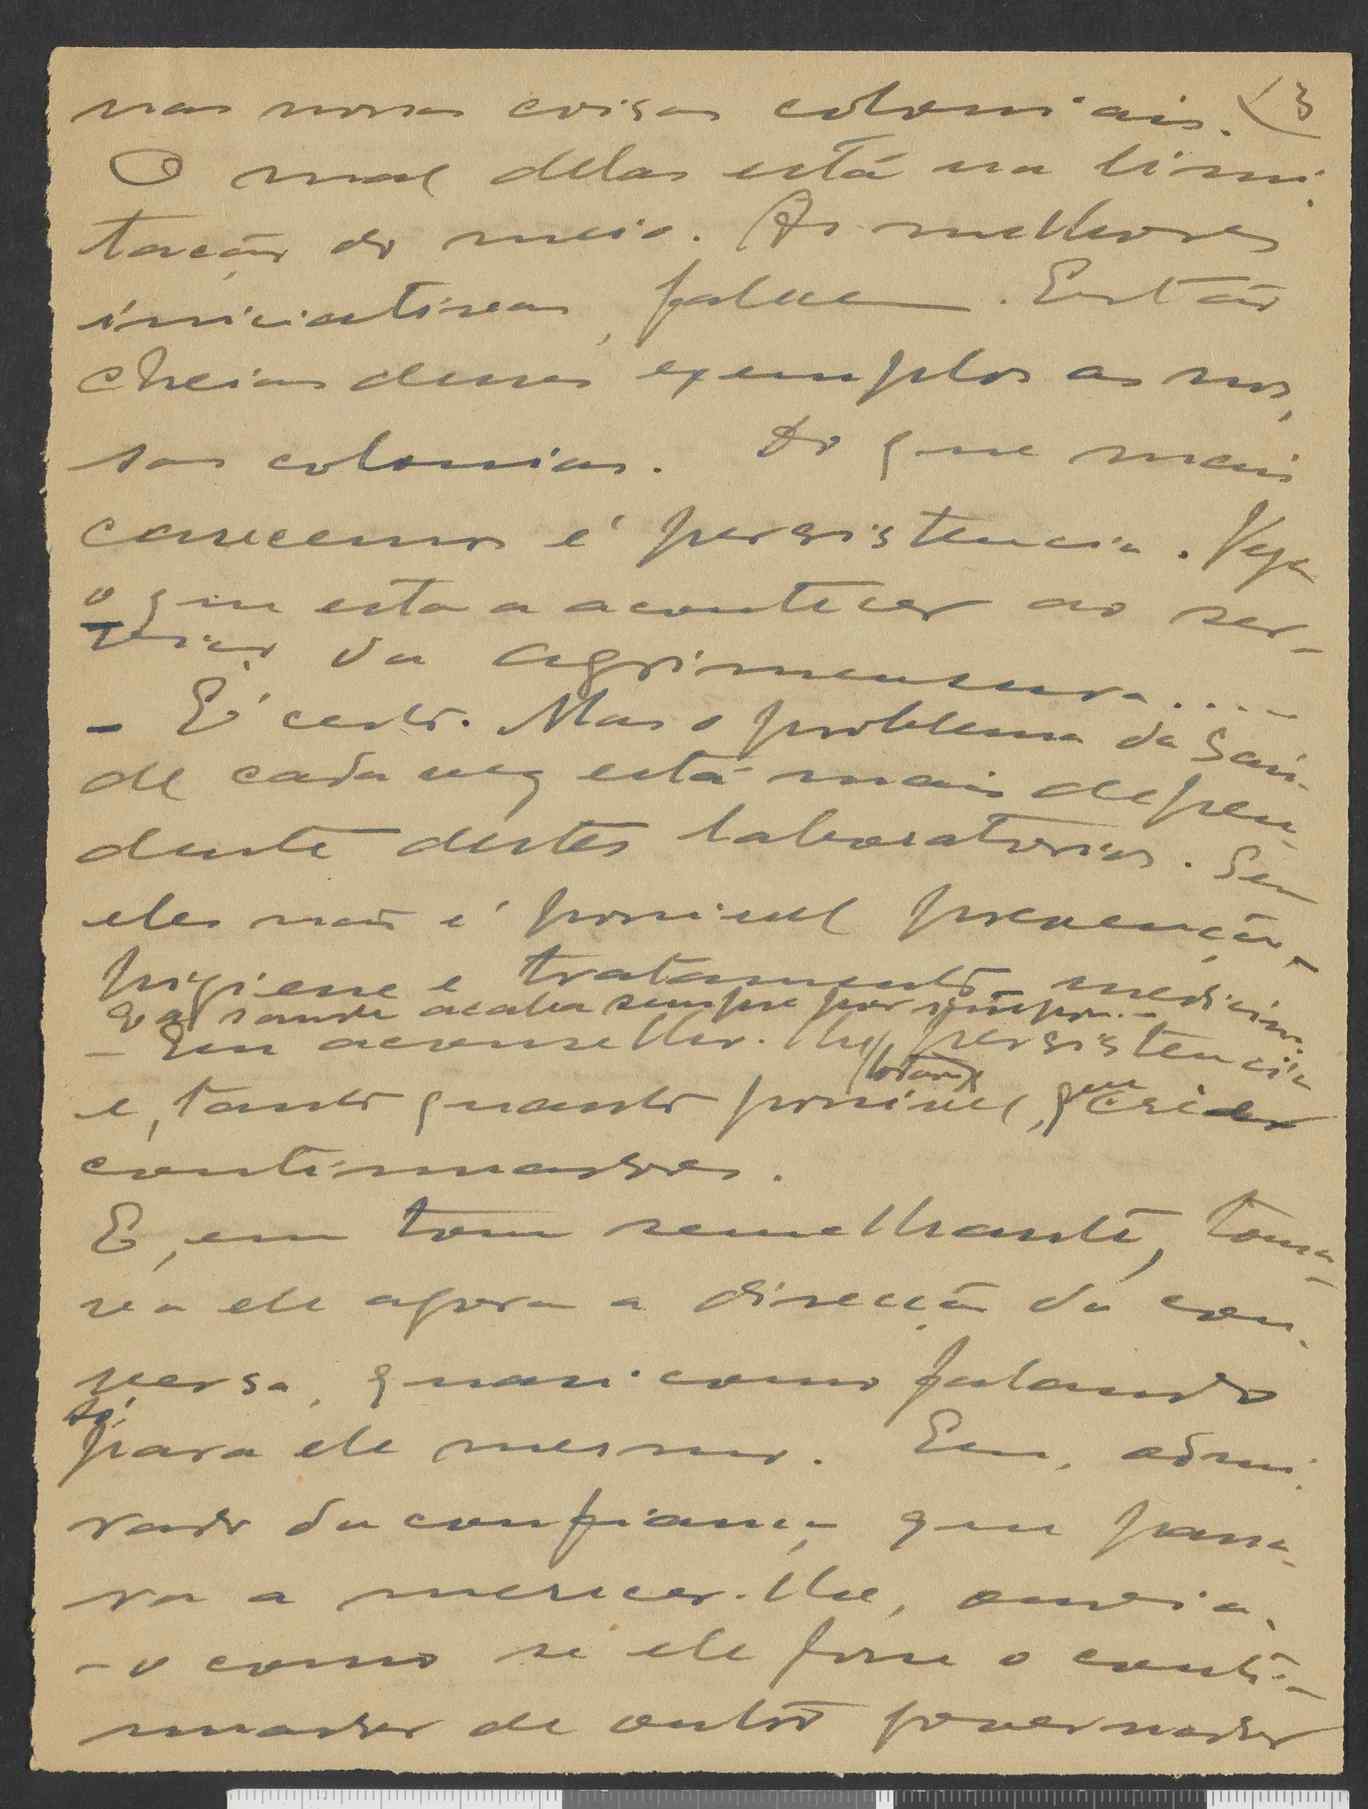 13
nas nossas coisas coloniais.
O mal delas está na limi-
tação do meio. As melhores
iniciativas, falham. Estão
cheias desses exemplos as nos-
sas colonias. Do que mais
carecemos é persistencia. Veja
o que esta a acontecer ao ser-
viço da agrimensura....
- É certo. Mas o problema da Saú-
de cada vez está mais depen-
dente destes laboratorios. Sem
eles não é possivel prevenção,
higiene e tratamento medicina.
E a saude acaba sempre por
- Eu aconselho-lhe persistencia
e, tanto quanto possivel, que crie
continuadores.
E, em tom semelhante, toma-
va ele agora a direcção da con-
versa, quasi como falando
só
para ele mesmo. Eu, admi-
rado da confiança que passa-
va a merecer-lhe, ouvia-
-o como se ele fosse o conti-
nuador de outro governador